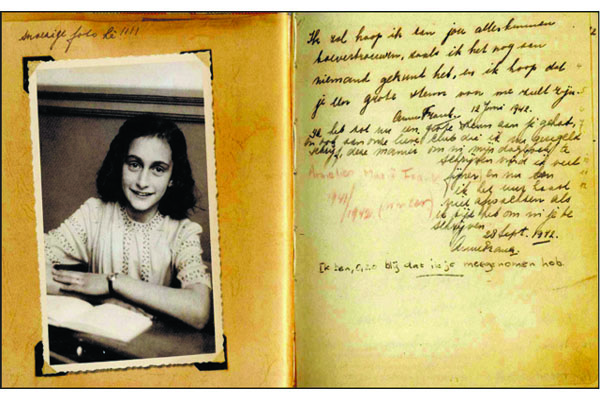 foto hè !!!!
Ik zal hoop ik aan jou alles kunnen
toevertrouwen, zoals ik het nog aan
niemand gekund heb, en ik hoop dat
je een grote steun voor me zult zijn.
Anne Frank. 12 Juni 1942.
Ik heb tot nu een grote steun aan je gehad,
en ook aan onze lieve club die ik nu geregeld
schrijf, deze manier om in mijn dagboek te
schrijven vind ik veel
fijner en nu kan
ik het uur haast
niet afwachten als
ik tijd heb om in je te
schrijven
28 Sept. 1942.
Anne Frank.
Annelies Marie Frank
1942
Ik ben, O, zo blij dat ik je meegenomen heb.